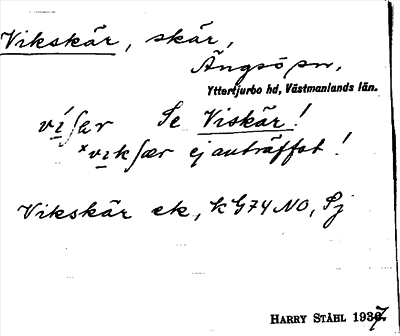 Vikskär, skär,
Ängsö sn,
Yttertjurbo hd, Västmanlands län.
ví∫ær Se Viskär!
*vik∫ær ej anträffat!
Vikskär ek, K G74 NO, Sj
HARRY STÅHL 1937.